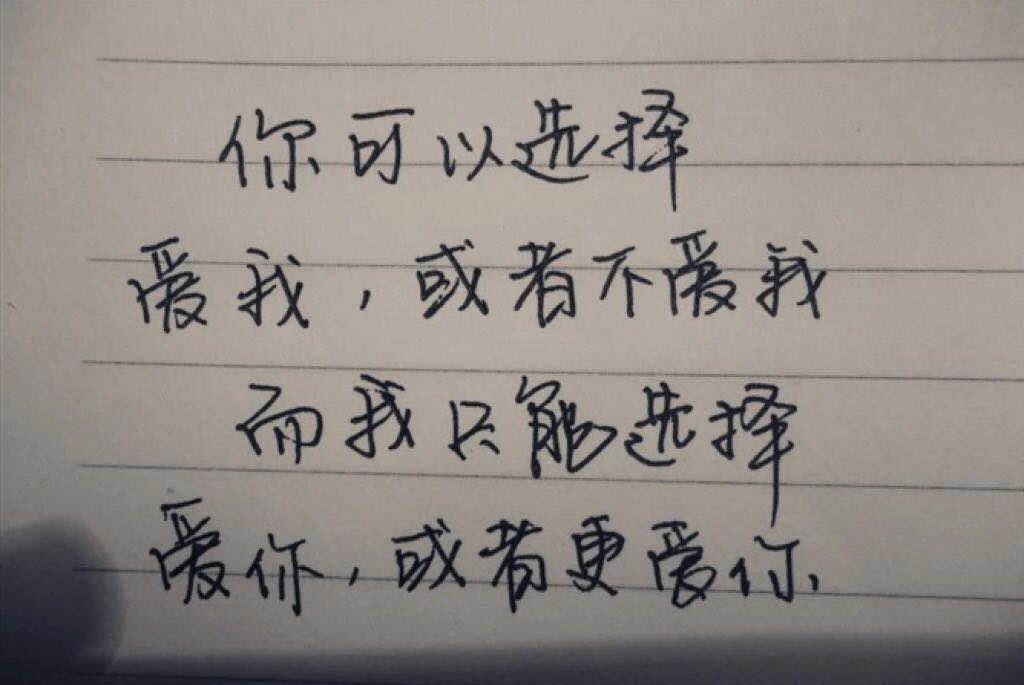 你可以选择
爱我，或者不爱我
而我只能选择
爱你，或者更爱你